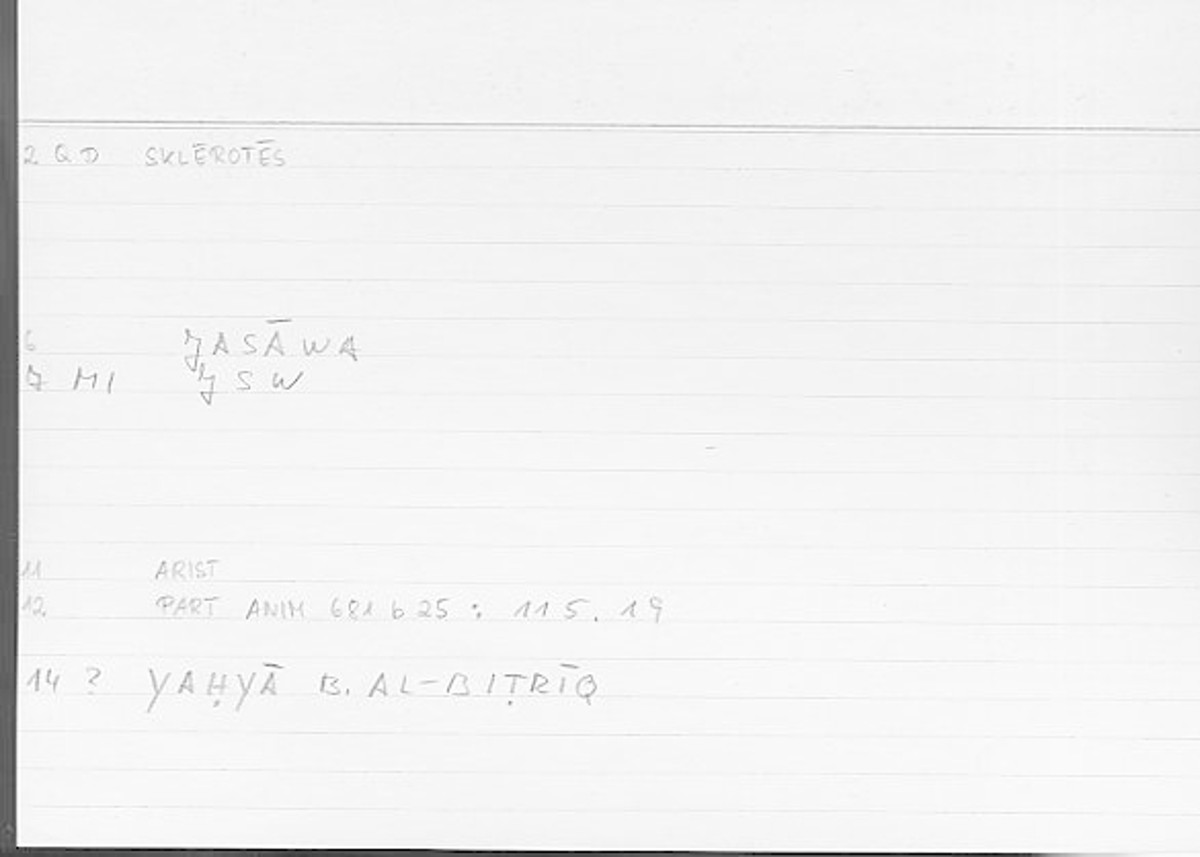 2 QD SKLĒROTĒS
6 QASĀWA
7 MI QSW
11 ARIST
12 PART ANIM 681 b 25 : 115.19
14 ? YAḤYĀ B. AL-BIṬRĪQ